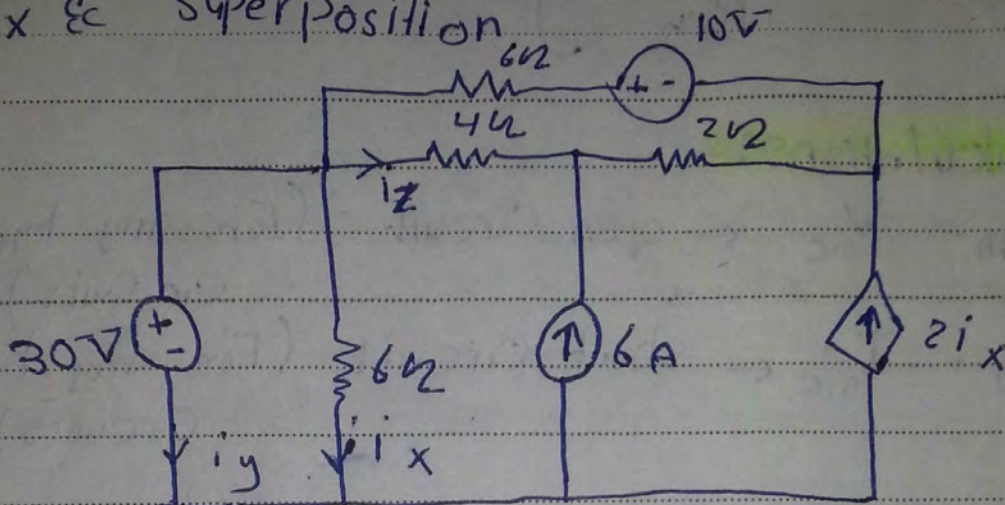 x & Superposition
6Ω
10V
+ -
4Ω
2Ω
iz
30V
+
-
6Ω
6A
2ix
iy
ix